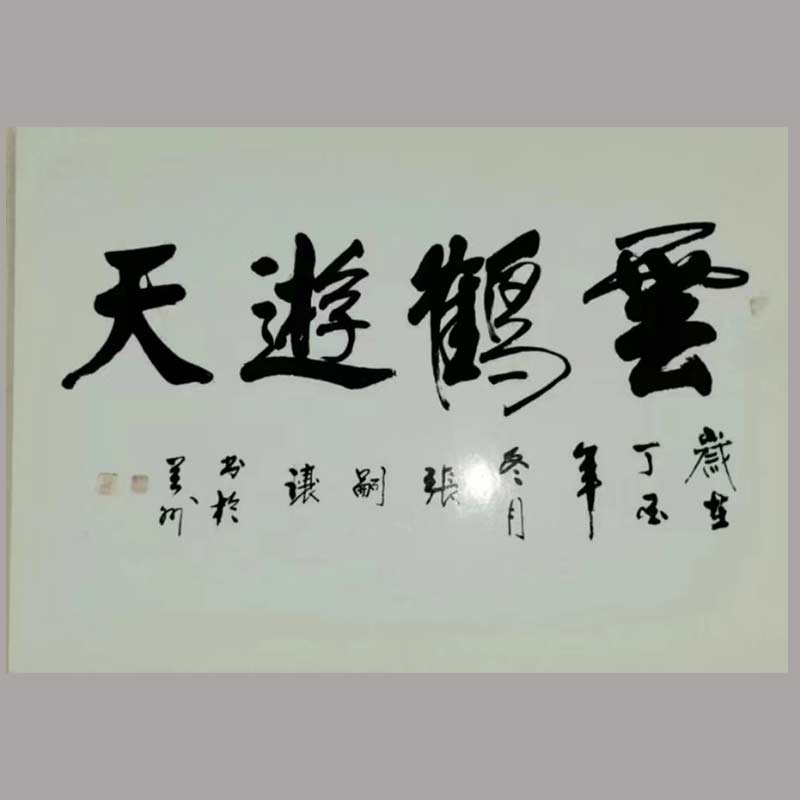 雲鶴遊天
歲在
丁酉
年
冬月
張
嗣
讓
書於
兰州